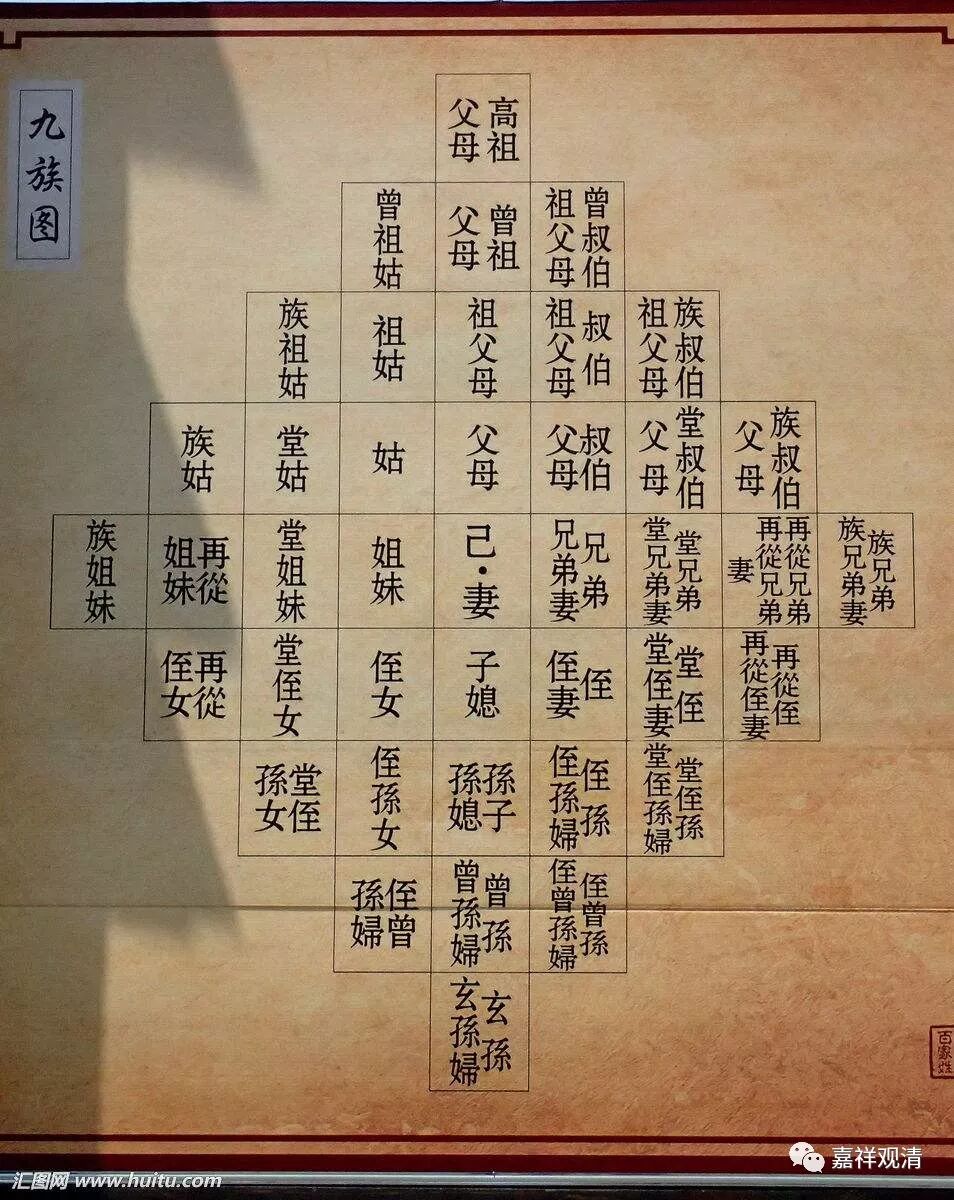 九族图
高祖
父母
曾祖姑
曾祖
父母
曾叔伯
祖父母
族祖姑
祖姑
祖父母
叔伯
祖父母
族叔伯
祖父母
族姑
堂姑
姑
父母
叔伯
父母
堂叔伯
父母
族叔伯
父母
族姐妹
再從
姐妹
堂姐妹
姐妹
己·妻
兄弟
兄弟妻
堂兄弟
堂兄弟妻
再從兄弟
再從兄弟
妻
族兄弟
族兄弟妻
再從
侄女
堂侄女
侄女
子媳
侄
侄妻
堂侄
堂侄妻
再從侄
再從侄妻
堂侄
孫女
侄孫女
孫子
孫媳
侄孫
侄孫婦
堂侄孫
堂侄孫婦
侄曾
孫婦
曾孫
曾孫婦
侄曾孫
侄曾孫婦
玄孫
玄孫婦
百家姓
汇图网 www.huitu.com
嘉祥观清